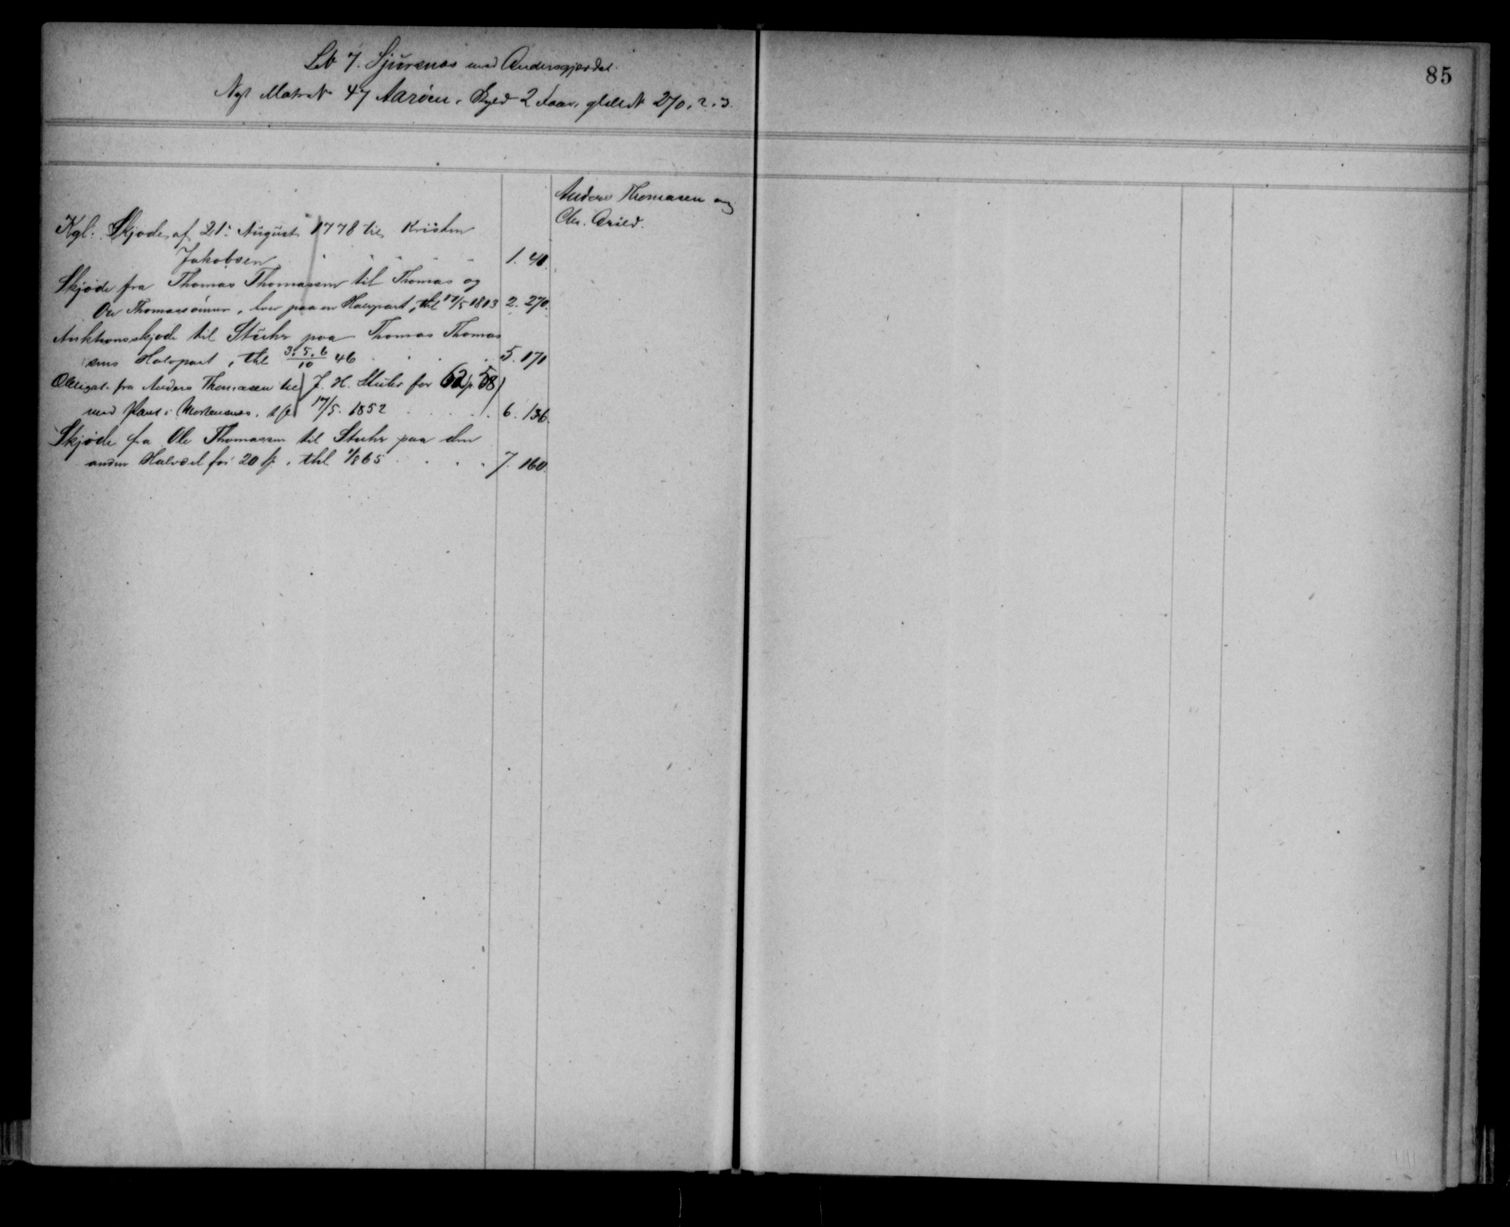 85
Lb 7. Sjurenæs med Andersgjærdet.
Nyt Matr N 47 Aarøen. Skyld 2 Faar, gl N 270. 2. 3.
Anders Thomasen og
Chr. Arild.
Kgl. Skjøde af 21. August 1778 til Kristen
Jakobsen 1. 40.
Skjøde fra Thomas Thomassen til Thomas og
Ole Thomassønner, hver paa en Halvpart, thl 17/5 1813 2. 270.
Auktionsskjøde til Stuhr paa Thomas Thomas
sens Halvpart, thl 3.5.6/10 46 5. 171
Obligat. fra Anders Thomasen til J. H. Stuhr for 62 58
med Pant i Mortensnæs. 17/5. 1852 6. 136.
Skjøde fra Ole Thomassen til Stuhr paa den
anden Halvdel for 20, thl 65 7. 160.